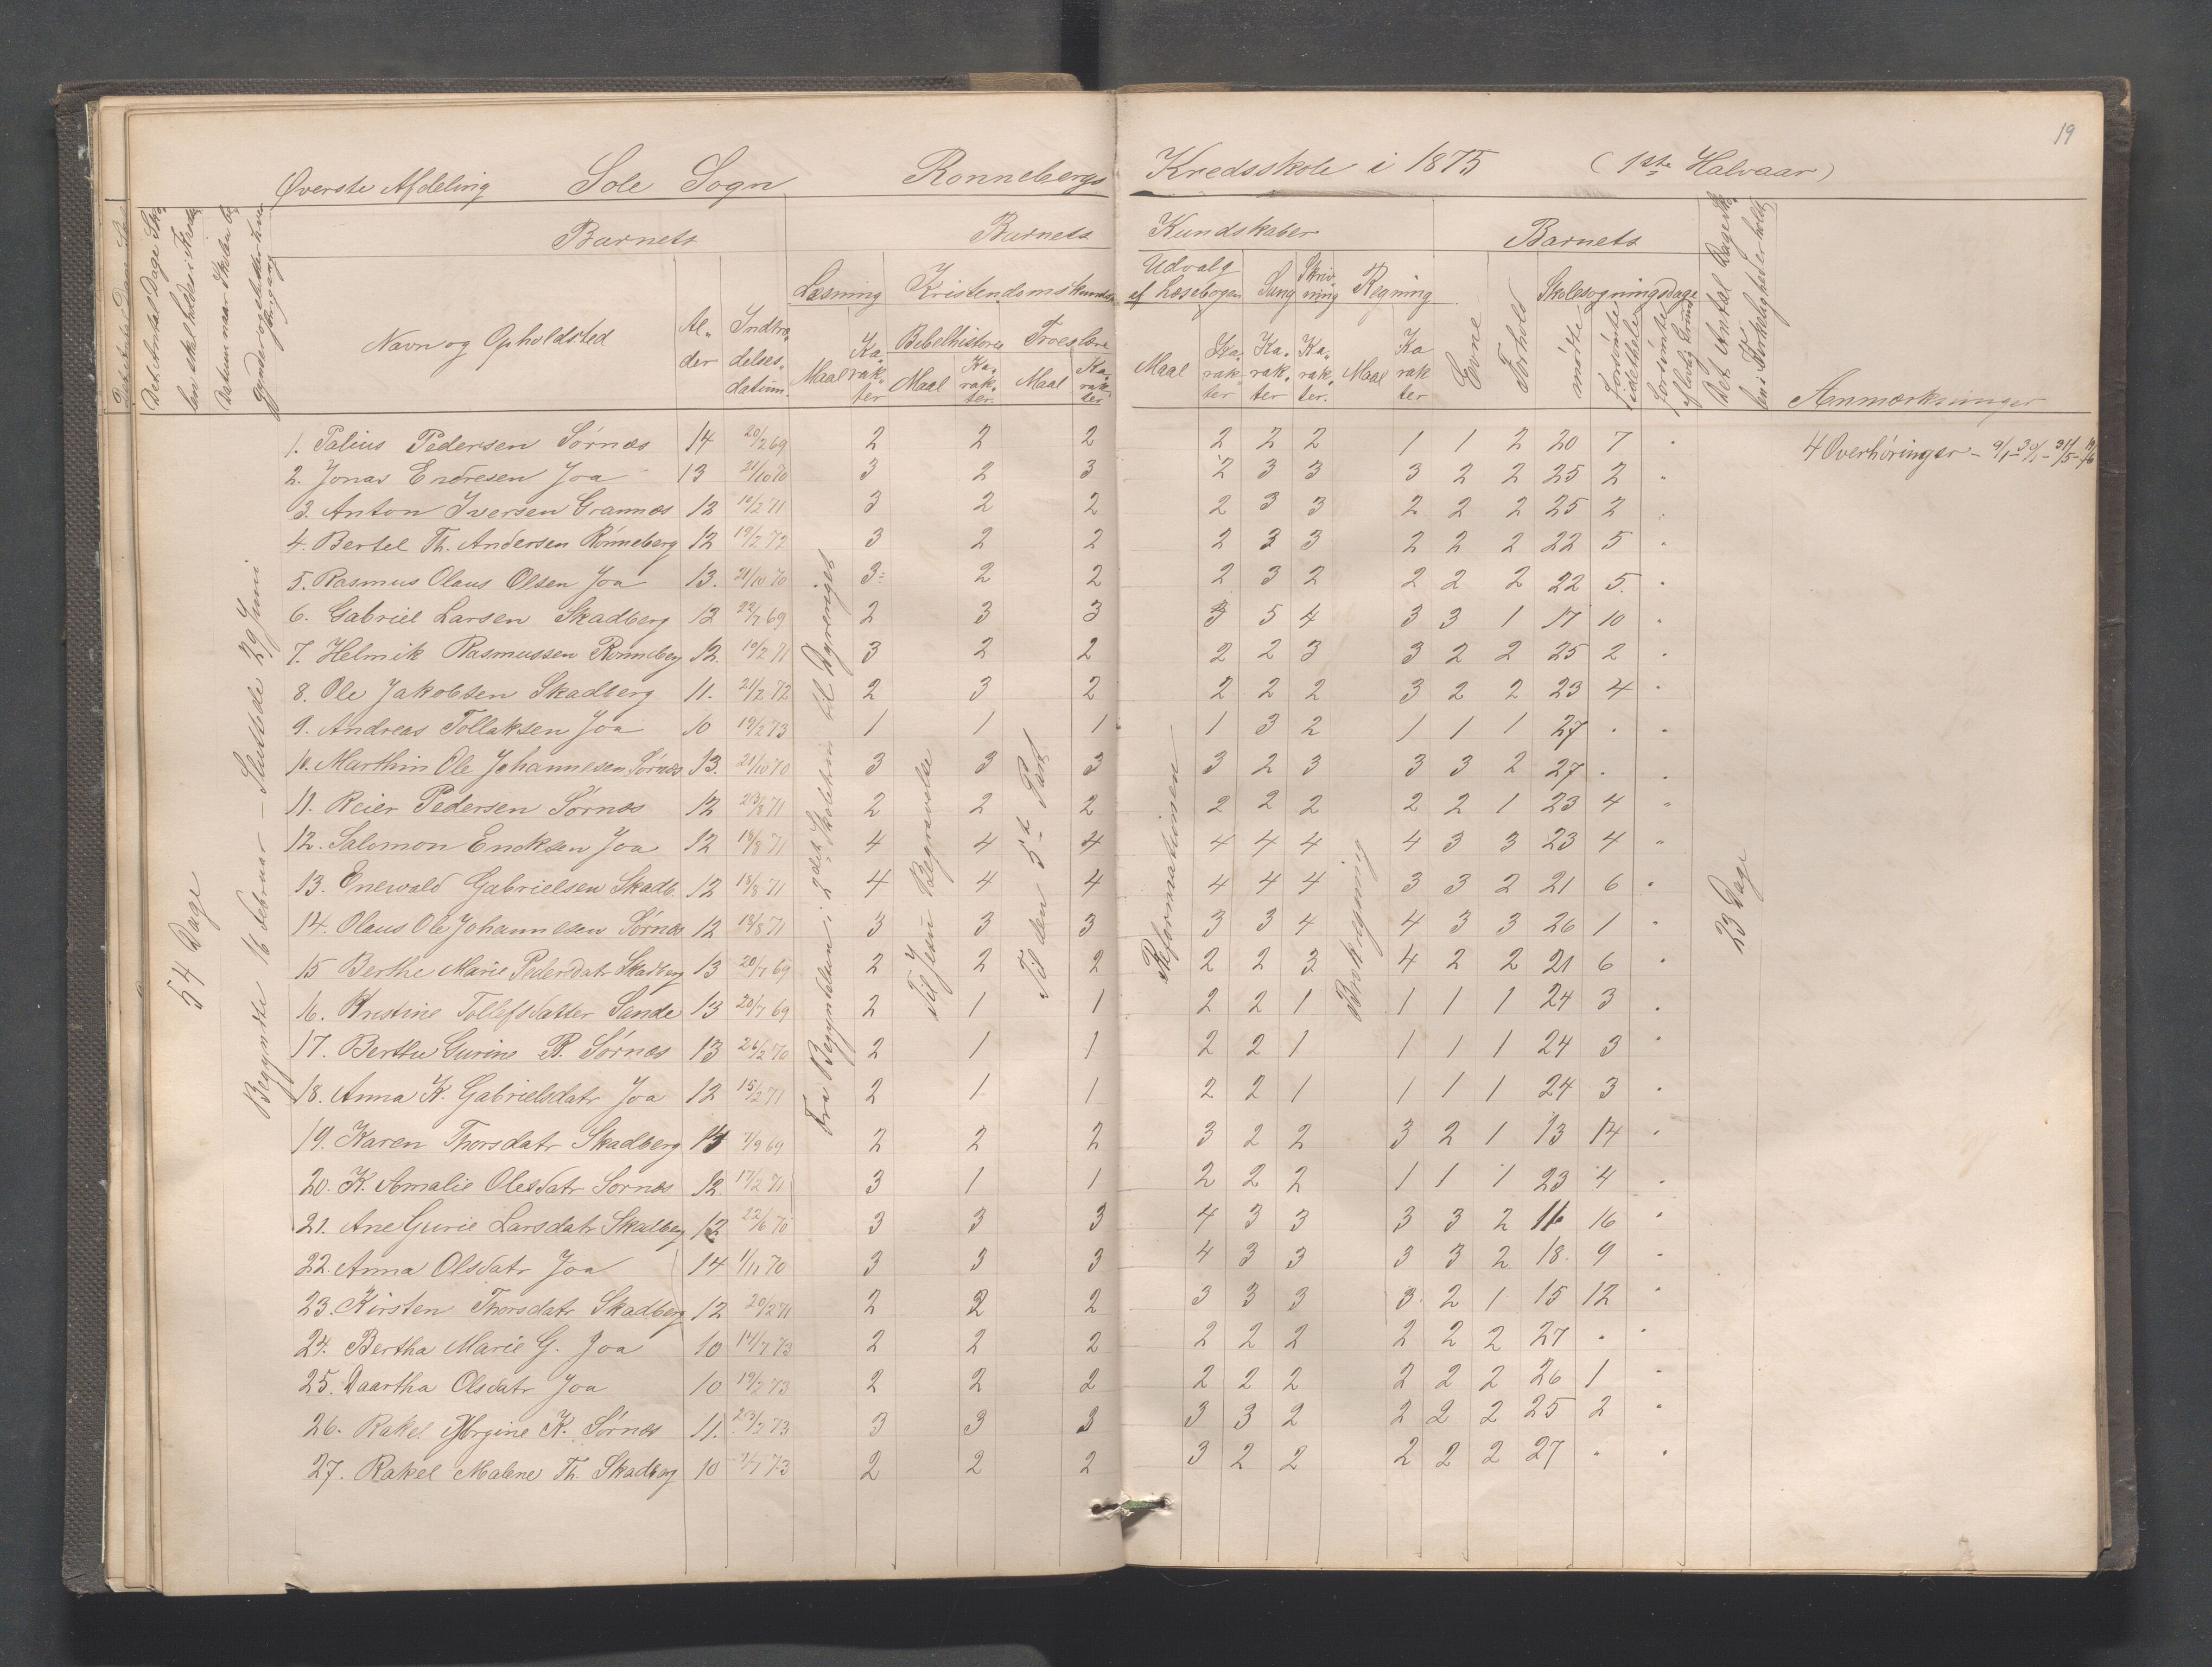 19
Øverste Afdeling Sole Sogn Ronnebergs Kredsskole i 1875 (1ste Halvaar)
Det Antal Dage Skolen skal holdes i Kredsen
Datum naar Skolen begynder og slutter hver Omgang
Barnets
Barnets Kundskaber
Barnets
Navn og Opholdsted
Alder
Indtrædelsesdatum.
Læsning
Kristendomskundskab
Bibelhistorie
Troeslære
Udvalg af Læsebogen
Sang
Skrivning
Regning
Maal
Karakter
Maal
Karakter.
Maal
Karakter
Maal
Karakter
Karakter
Karakter.
Maal
Karakter
Evne
Forhold
Skolesøgningsdage
mødte
forsømte
forsømte af lovlig Grund
Det Antal Dage Skolen i Virkeligheden holdt
Anmærkninger
54 Dage
Begyndte 16 Februar – Sluttede 29 Juni
Fra Begyndelsen i 2det Skoletrin til Dyreriget
Til Jesu Begravelse
Til den 5te Part
Reformationen
Brøkregning
23 Dage
4 Overhøringer
1. Palius Pedersen Sørnæs 14 20/2 69 2 2 2 2 2 2 1 1 2 20 7 "
2. Jonas Endresen Joa 13 21/10 70 3 2 3 2 3 3 3 2 2 25 2 "
3. Anton Iversen Grannæs 12 19/2 71 3 2 2 2 3 3 2 2 2 25 2 "
4. Bertel Th. Andersen Rønneberg 12 19/2 72 3 2 2 2 3 3 2 2 2 22 5 "
5. Rasmus Olaus Olsen Joa 13. 21/10 70 3 2 2 2 3 2 2 2 2 22 5. "
6. Gabriel Larsen Skadberg 12 22/7 69 2 3 3 3 5 4 3 3 1 17 10 "
7. Helmik Rasmussen Rønneberg 12. 19/2 71 3 2 2 2 2 3 3 2 2 25 2 "
8. Ole Jakobsen Skadberg 11. 21/2 72 2 3 2 2 2 2 3 2 2 23 4 "
9. Andreas Tollaksen Joa 10 19/2 73 1 1 1 1 3 2 1 1 1 27 " "
10. Marthin Ole Johannesen Sørnæs 13. 21/10 70 3 3 3 3 2 3 3 3 2 27 " "
11. Reier Pedersen Sørnæs 12 23/8 71 2 2 2 2 2 2 2 2 1 23 4 "
12. Salomon Encksen Joa 12 18/8 71 4 4 4 4 4 4 4 3 3 23 4 "
13. Enewald Gabrielsen Skadb. 12 18/8 71 4 4 4 4 4 4 3 3 2 21 6 "
14. Olaus Ole Johannesen Sørnæs 12 18/8 71 3 3 3 3 3 4 4 3 3 26 1 "
15 Berthe Marie Pedersdatr Skadberg 13 20/7 69 2 2 2 2 2 3 4 2 2 21 6 "
16. Kristine Tollefsdatter Sande 13 20/7 69 2 1 1 2 2 1 1 1 1 24 3 "
17. Berthe Gurine P. Sørnæs 13 26/2 70 2 1 1 2 2 1 1 1 1 24 3 "
18. Anna K. Gabrielsdatr Joa 12 15/2 71 2 1 1 2 2 1 1 1 1 24 3 "
19. Karen Thorsdatr Skadberg 13 7/9 69 2 2 2 3 2 2 3 2 1 13 14 "
20. K. Amalie Olesdatr Sørnæs 12. 17/2 71 3 1 1 2 2 2 1 1 1 23 4 "
21. Ane Gurie Larsdatr Skadberg 12 22/6 70 3 3 3 4 3 3 3 3 2 11 16 "
22. Anna Olsdatr Joa 14 1/11 70 3 3 3 4 3 3 3 3 2 18. 9 "
23. Kirsten Thorsdatr Skadberg 12 20/2 71 2 2 2 3 3 3 3 2 1 15 12 "
24. Bertha Marie G. Joa 10 14/7 73 2 2 2 2 2 2 2 2 2 27 " "
25. Daartha Olsdatr Joa 10 19/2 73 2 2 2 2 2 2 2 2 2 26 1 "
26. Rakel Jørgine K. Sørnæs 11. 23/2 73 3 3 3 3 3 2 2 2 2 25 2 "
27. Rakel Malene Th. Skadberg 10 7/7 73 2 2 2 3 2 2 2 2 2 27 " "